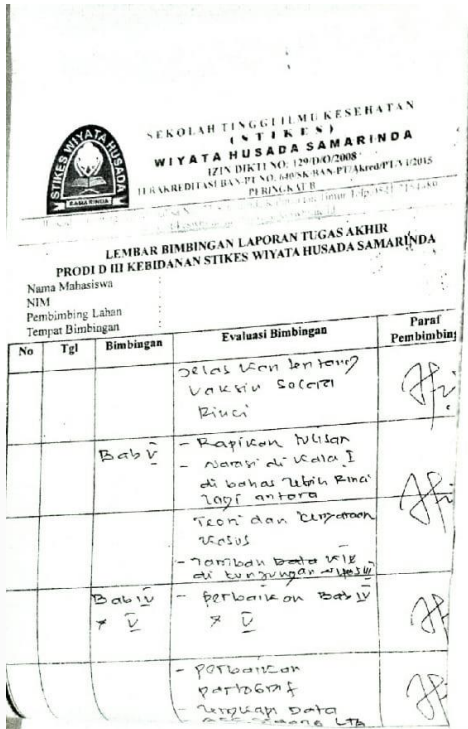 SEKOLAH TINGGI ILMU KESEHATAN
( S T I K E S )
WIYATA HUSADA SAMARINDA
IZIN DIKTI NO: 129/D/O/2008
TERAKREDITASI BAN-PT NO. 640/SK/BAN-PT/Akred/PT/VI/2015
PERINGKAT B
STIKES WIYATA HUSADA
SAMARINDA
LEMBAR BIMBINGAN LAPORAN TUGAS AKHIR
PRODI D III KEBIDANAN STIKES WIYATA HUSADA SAMARINDA
Nama Mahasiswa :
NIM :
Pembimbing Lahan :
Tempat Bimbingan :
No Tgl Bimbingan Evaluasi Bimbingan Paraf Pembimbing
Jelas kan tentang
Vaksin Secara
Rinci
Bab V - Rapikan tulisan
- Narasi di Kala I
di bahas lebih Rinci
lagi antara
Teori dan kenyataan
Kasus
- Tambah Data KIE
di kunjungan
Bab IV - perbaikan Bab IV
& V & V
- perbaikan
partograf
- lengkapi Data
LTA